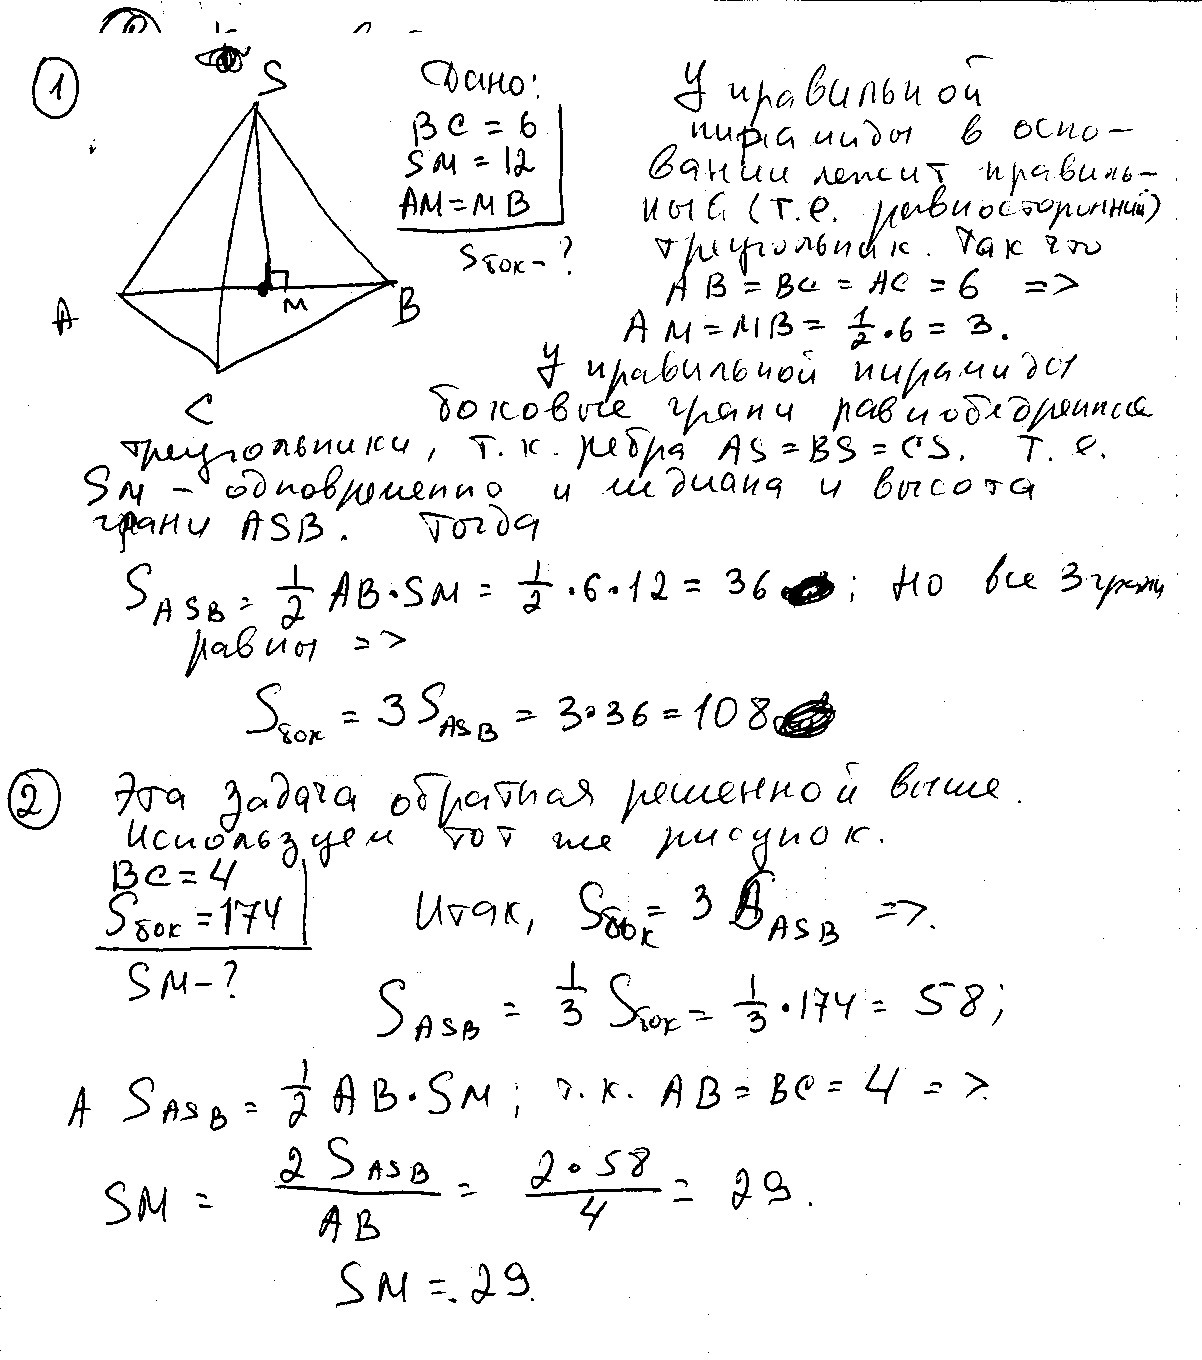 1
S
A
M
B
C
Дано:
BC = 6
SM = 12
AM = MB
Sбок - ?
У правильной
пирамиды в осно-
вании лежит правиль-
ный (т.е. равносторонний)
треугольник. Так что
AB = BC = AC = 6 =>
AM = MB = 1/2 · 6 = 3.
У правильной пирамиды
боковые грани равнобедренные
треугольники, т.к. ребра AS = BS = CS. Т.е.
SM - одновременно и медиана и высота
грани ASB. Тогда
S ASB = 1/2 AB · SM = 1/2 · 6 · 12 = 36 ; но все 3 грани
равны =>
Sбок = 3 S ASB = 3 · 36 = 108
2 Эта задача обратная решенной выше.
Используем тот же рисунок.
BC = 4
Sбок = 174
SM - ?
Итак, Sбок = 3 S ASB =>.
S ASB = 1/3 Sбок = 1/3 · 174 = 58;
А S ASB = 1/2 AB · SM; т.к. AB = BC = 4 =>
SM = 2 S ASB / AB = 2 · 58 / 4 = 29.
SM = 29.